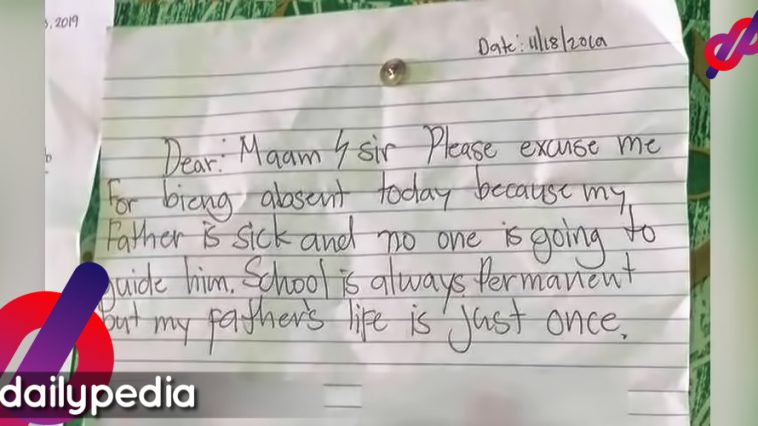 , 2019
Date: 11/18/2019
Dear: Maam & sir Please excuse me
For bieng absent today because my
Father is sick and no one is going to
guide him. School is always Permanent
but my father's life is just once.
dailypedia